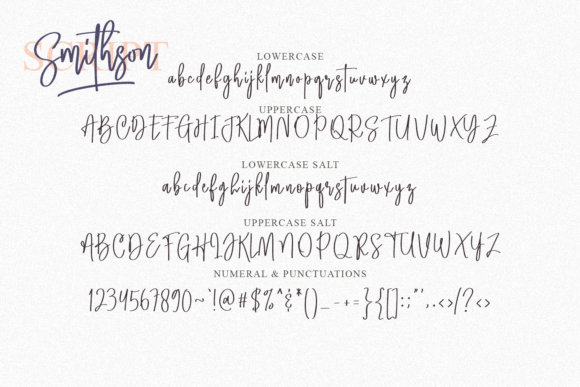 SCRIPT
Smithson
LOWERCASE
abcdefghijklmnopqrstuvwxyz
UPPERCASE
ABCDEFGHIJKLMNOPQRSTUVWXYZ
LOWERCASE SALT
abcdefghijklmnopqrstuvwxyz
UPPERCASE SALT
ABCDEFGHIJKLMNOPQRSTUVWXYZ
NUMERAL & PUNCTUATIONS
1234567890~`!@#$%^&*()_-+=}{[]:;"',.<>/?<>